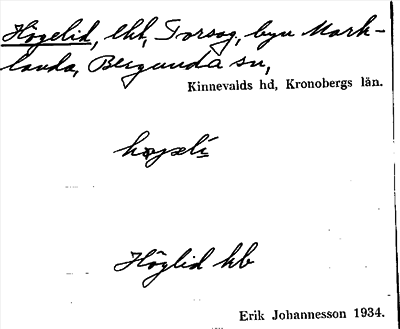 Högelid, lht, Torsag, byn Mark-
landa, Bergunda sn,
Kinnevalds hd, Kronobergs län.
høgəlí
Höglid hb
Erik Johannesson 1934.